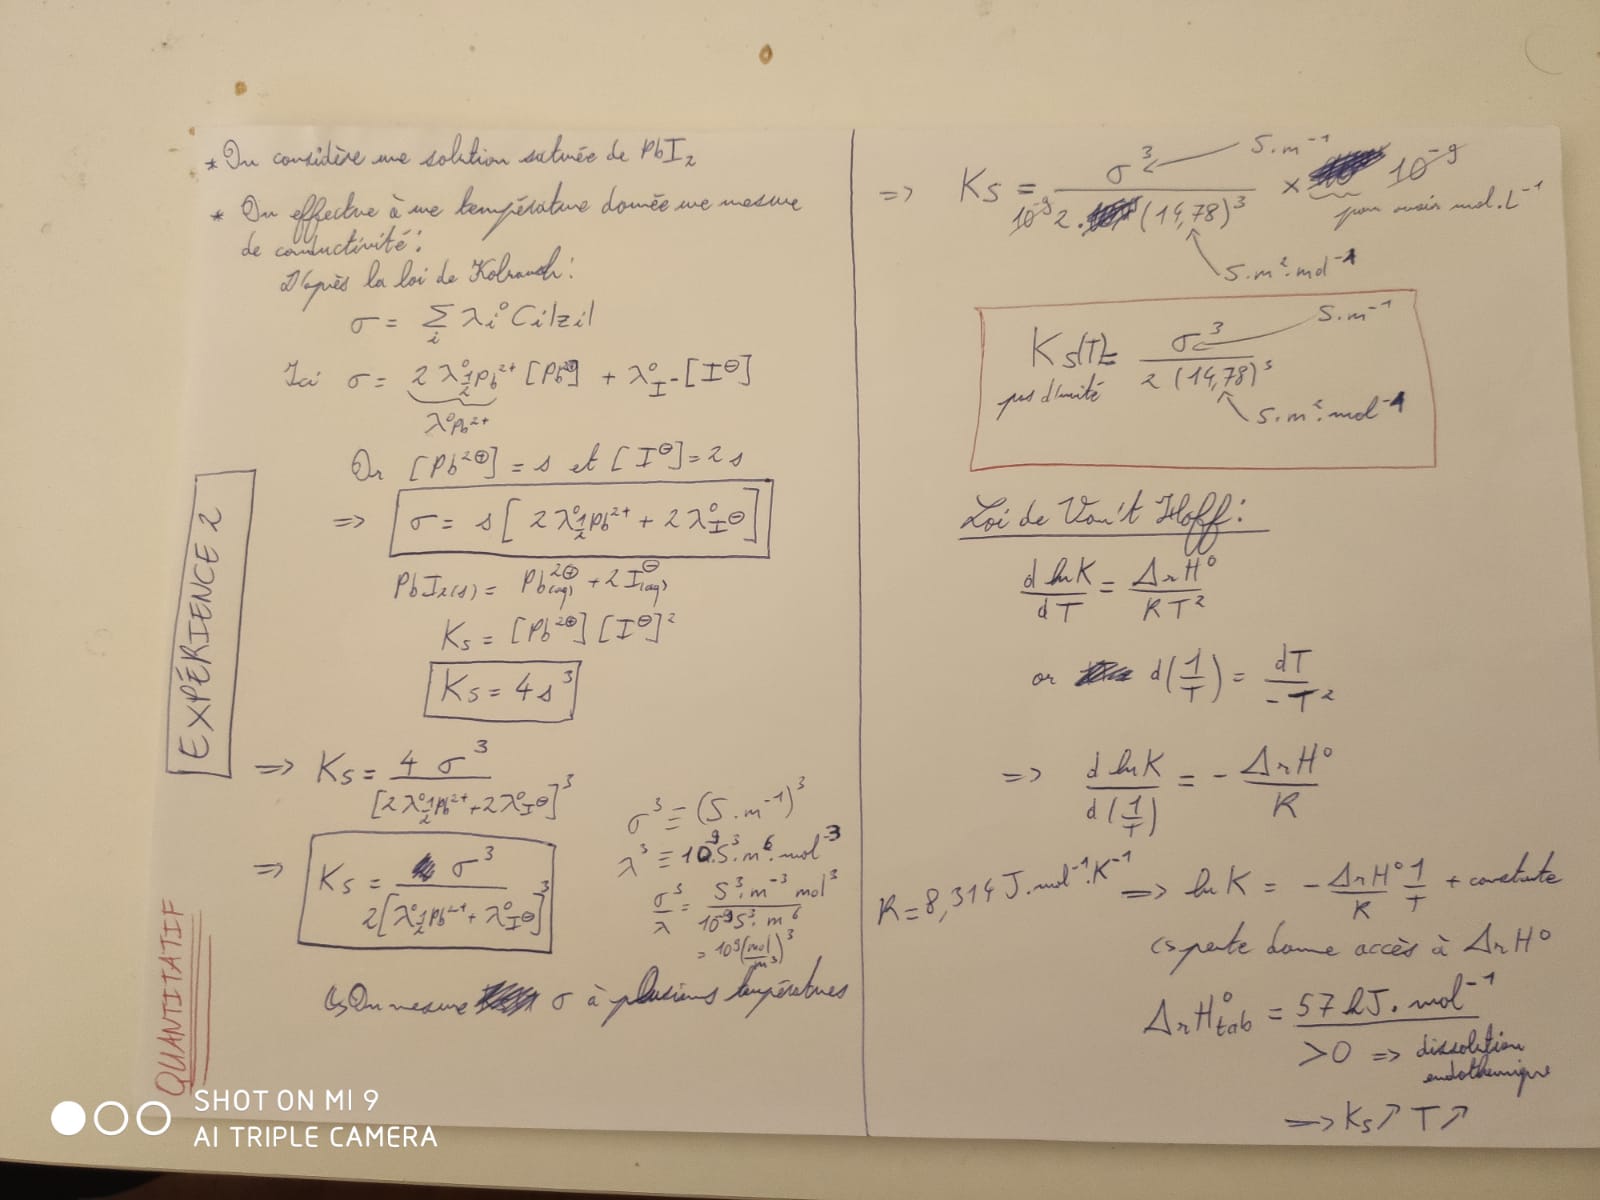 * On considère une solution saturée de PbI₂
* On effectue à une température donnée une mesure
de conductivité :
D'après la loi de Kolrausch :
σ = Σᵢ λᵢ° Cᵢ |zᵢ|
Ici σ = 2 λ°½Pb²⁺ [Pb²⁺] + λ°I⁻ [I⊖]
λ°Pb²⁺
Or [Pb²⊕] = s et [I⊖] = 2s
=> σ = s [2 λ°½Pb²⁺ + 2 λ°I⊖]
PbI₂(s) = Pb²⊕(aq) + 2 I⊖(aq)
Ks = [Pb²⊕] [I⊖]²
Ks = 4s³
EXPÉRIENCE 2
=> Ks = 4 σ³ / [2 λ°½Pb²⁺ + 2 λ°I⊖]³
=> Ks = σ³ / 2[λ°½Pb²⁺ + λ°I⊖]³
σ³ ≡ (S.m⁻¹)³
λ³ ≡ 10⁻⁹ S³.m⁶.mol⁻³
σ³/λ = S³.m⁻³ mol³ / 10⁻⁹ S³.m⁶
= 10⁹ (mol/m³)³
QUANTITATIF
↳ On mesure σ à plusieurs températures
=> Ks = σ³ / 10⁻⁹ 2. (14,78)³ × 10⁻⁹
S.m⁻¹
pour avoir mol.L⁻¹
S.m².mol⁻¹
Ks(T) = σ³ / 2 (14,78)³
S.m⁻¹
pas d'unité
S.m².mol⁻¹
Loi de Van't Hoff :
d lnK / dT = ΔrH° / RT²
or d(1/T) = dT / -T²
=> d lnK / d(1/T) = - ΔrH° / R
R = 8,314 J.mol⁻¹.K⁻¹ => ln K = - ΔrH°/R 1/T + constante
↳ pente donne accès à ΔrH°
ΔrH°tab = 57 kJ.mol⁻¹
>0 => dissolution
endothermique
=> Ks ↗ T ↗
SHOT ON MI 9
AI TRIPLE CAMERA